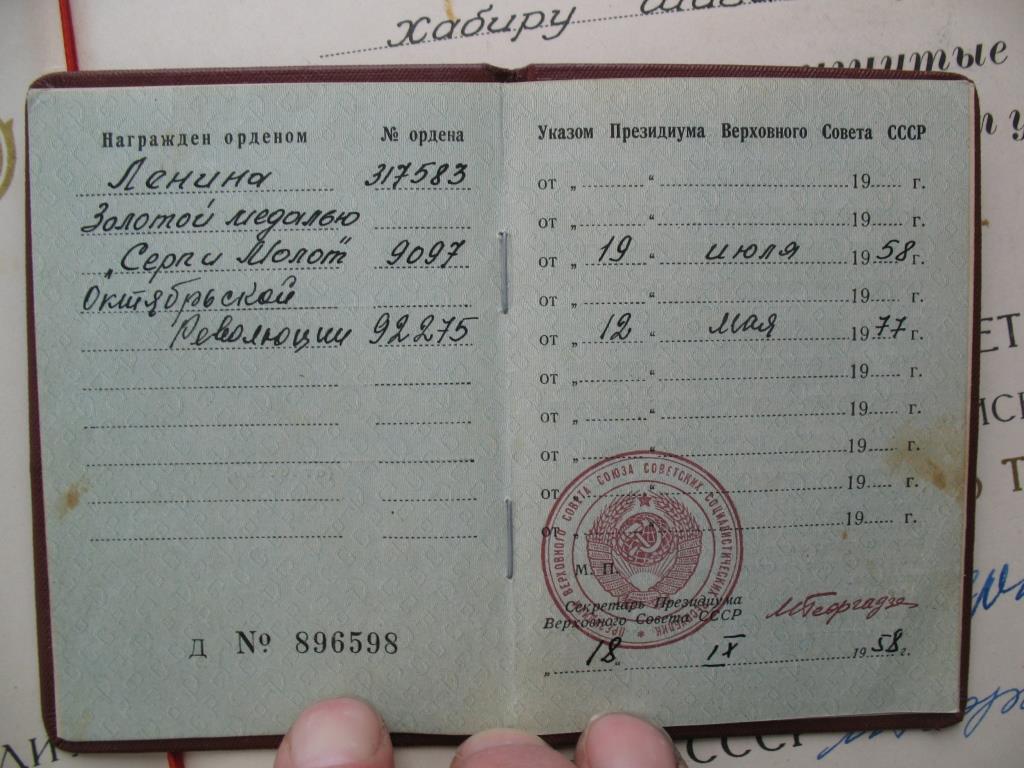 хабиру
Награжден орденом № ордена
Ленина 317583
Золотой медалью
„Серп и Молот" 9097
Октябрьской
Революции 92275
Д № 896598
Указом Президиума Верховного Совета СССР
от „ “ 19 г.
от „ “ 19 г.
от „ 19 “ июля 19 58 г.
от „ “ 19 г.
от „ 12 “ мая 19 77 г.
от „ “ 19 г.
от „ “ 19 г.
от „ “ 19 г.
от „ “ 19 г.
от „ “ 19 г.
М. П.
Секретарь Президиума
Верховного Совета СССР
МГеоргадзе
„ 18 “ IX 19 58 г.
ВЕРХОВНОГО СОВЕТА СОЮЗА СОВЕТСКИХ СОЦИАЛИСТИЧЕСКИХ
СССР